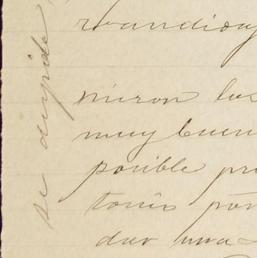 se despide
nieron los
muy buen
posible pr
tonis por
dar una